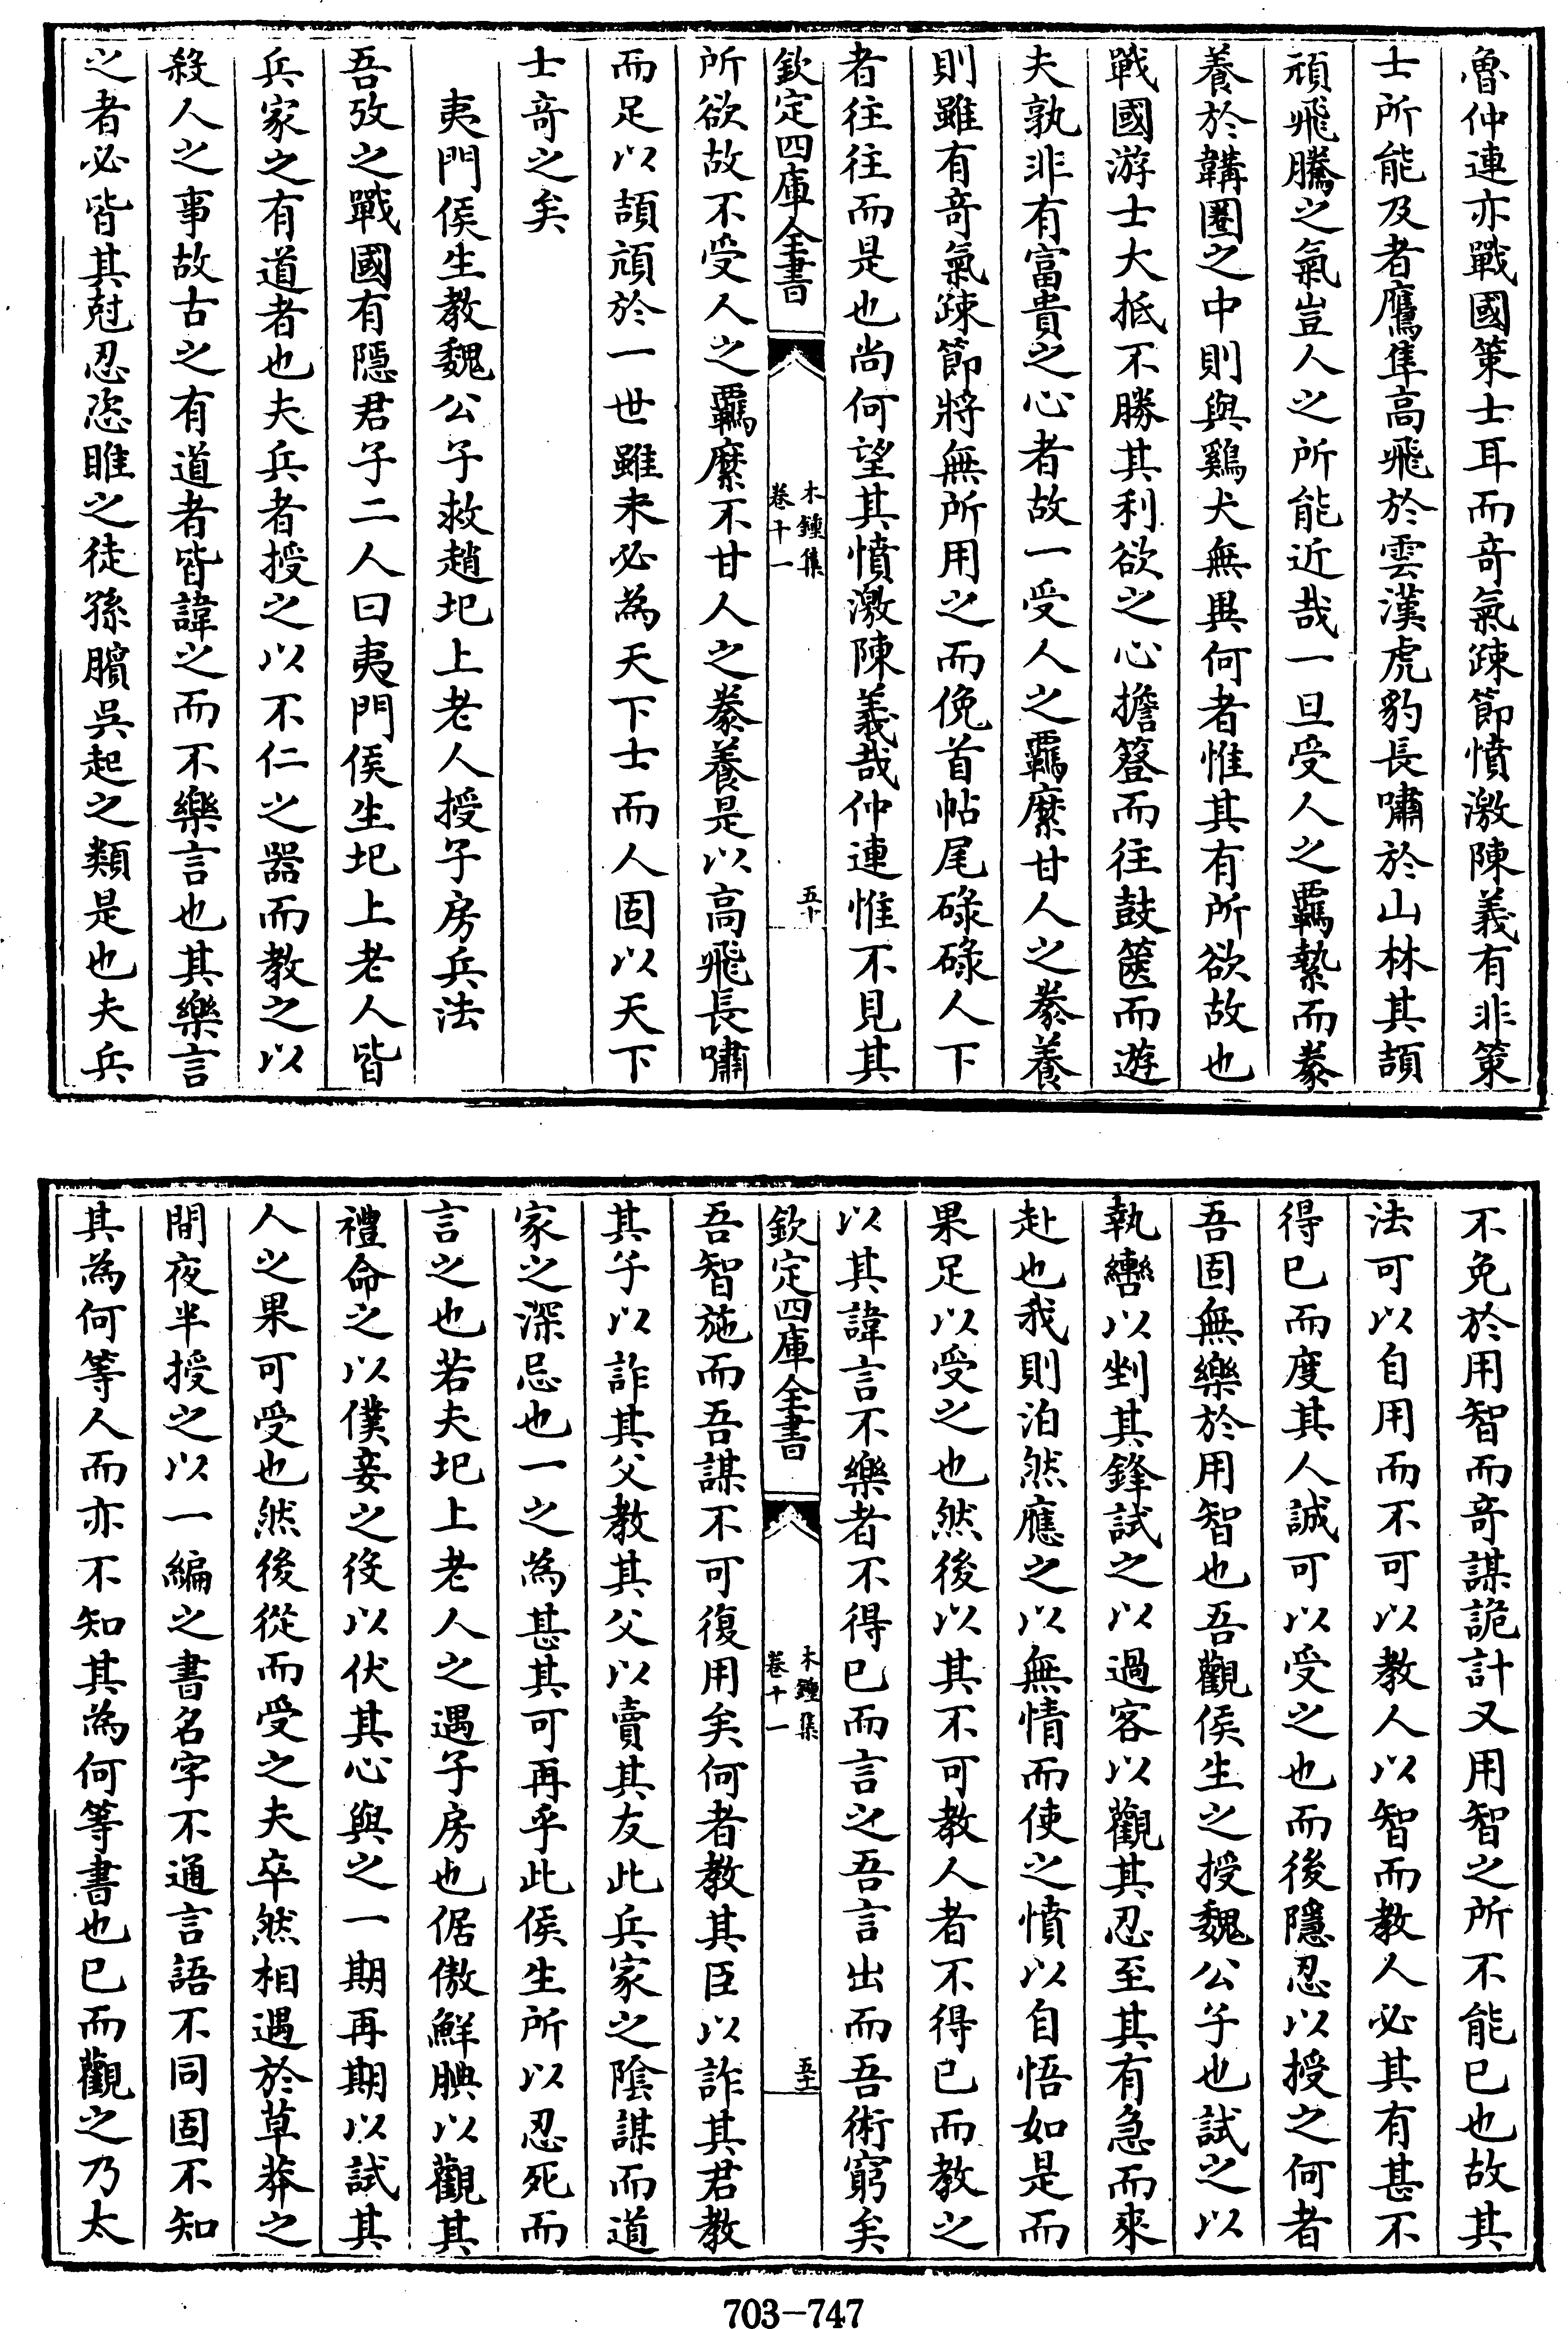 魯仲連亦戰國策士耳而竒氣踈節憤激陳義有非策
士所能及者鷹隼高飛於雲漢虎豹長嘯於山林其頡
頏飛騰之氣豈人之所能近哉一旦受人之羈縶而豢
養於鞲圈之中則與鷄犬無異何者惟其有所欲故也
戰國游士大抵不勝其利欲之心擔簦而往鼓篋而遊
夫孰非有富貴之心者故一受人之羈縻甘人之豢養
則雖有竒氣踈節將無所用之而俛首帖尾碌碌人下
者往往而是也尚何望其憤激陳義哉仲連惟不見其
欽定四庫全書
木鍾集
卷十一
五十
所欲故不受人之羈縻不甘人之豢養是以高飛長嘯
而足以頡頏於一世雖未必為天下士而人固以天下
士竒之矣
夷門侯生教魏公子救趙圯上老人授子房兵法
吾攷之戰國有隱君子二人曰夷門侯生圯上老人皆
兵家之有道者也夫兵者授之以不仁之器而教之以
殺人之事故古之有道者皆諱之而不樂言也其樂言
之者必皆其尅忍恣睢之徒孫臏吳起之類是也夫兵
不免於用智而竒謀詭計又用智之所不能已也故其
法可以自用而不可以教人以智而教人必其有甚不
得已而度其人誠可以受之也而後隱忍以授之何者
吾固無樂於用智也吾觀侯生之授魏公子也試之以
執轡以剉其鋒試之以過客以觀其忍至其有急而來
赴也我則泊然應之以無情而使之憤以自悟如是而
果足以受之也然後以其不可教人者不得已而教之
以其諱言不樂者不得已而言之吾言出而吾術窮矣
欽定四庫全書
木鍾集
卷十一
五十一
吾智施而吾謀不可復用矣何者教其臣以詐其君教
其子以詐其父教其父以賣其友此兵家之陰謀而道
家之深忌也一之為甚其可再乎此侯生所以忍死而
言之也若夫圯上老人之遇子房也倨傲鮮腆以觀其
禮命之以僕妾之役以伏其心與之一期再期以試其
人之果可受也然後從而受之夫卒然相遇於草莽之
間夜半授之以一編之書名字不通言語不同固不知
其為何等人而亦不知其為何等書也已而觀之乃太
703-747